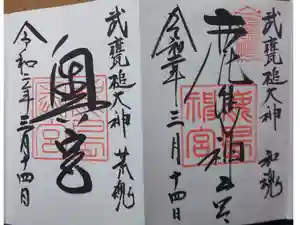 武甕槌大神 和魂
鹿島神宮
令和二年 三月十四日
武甕槌大神 荒魂
奥宮
令和二年 三月十四日